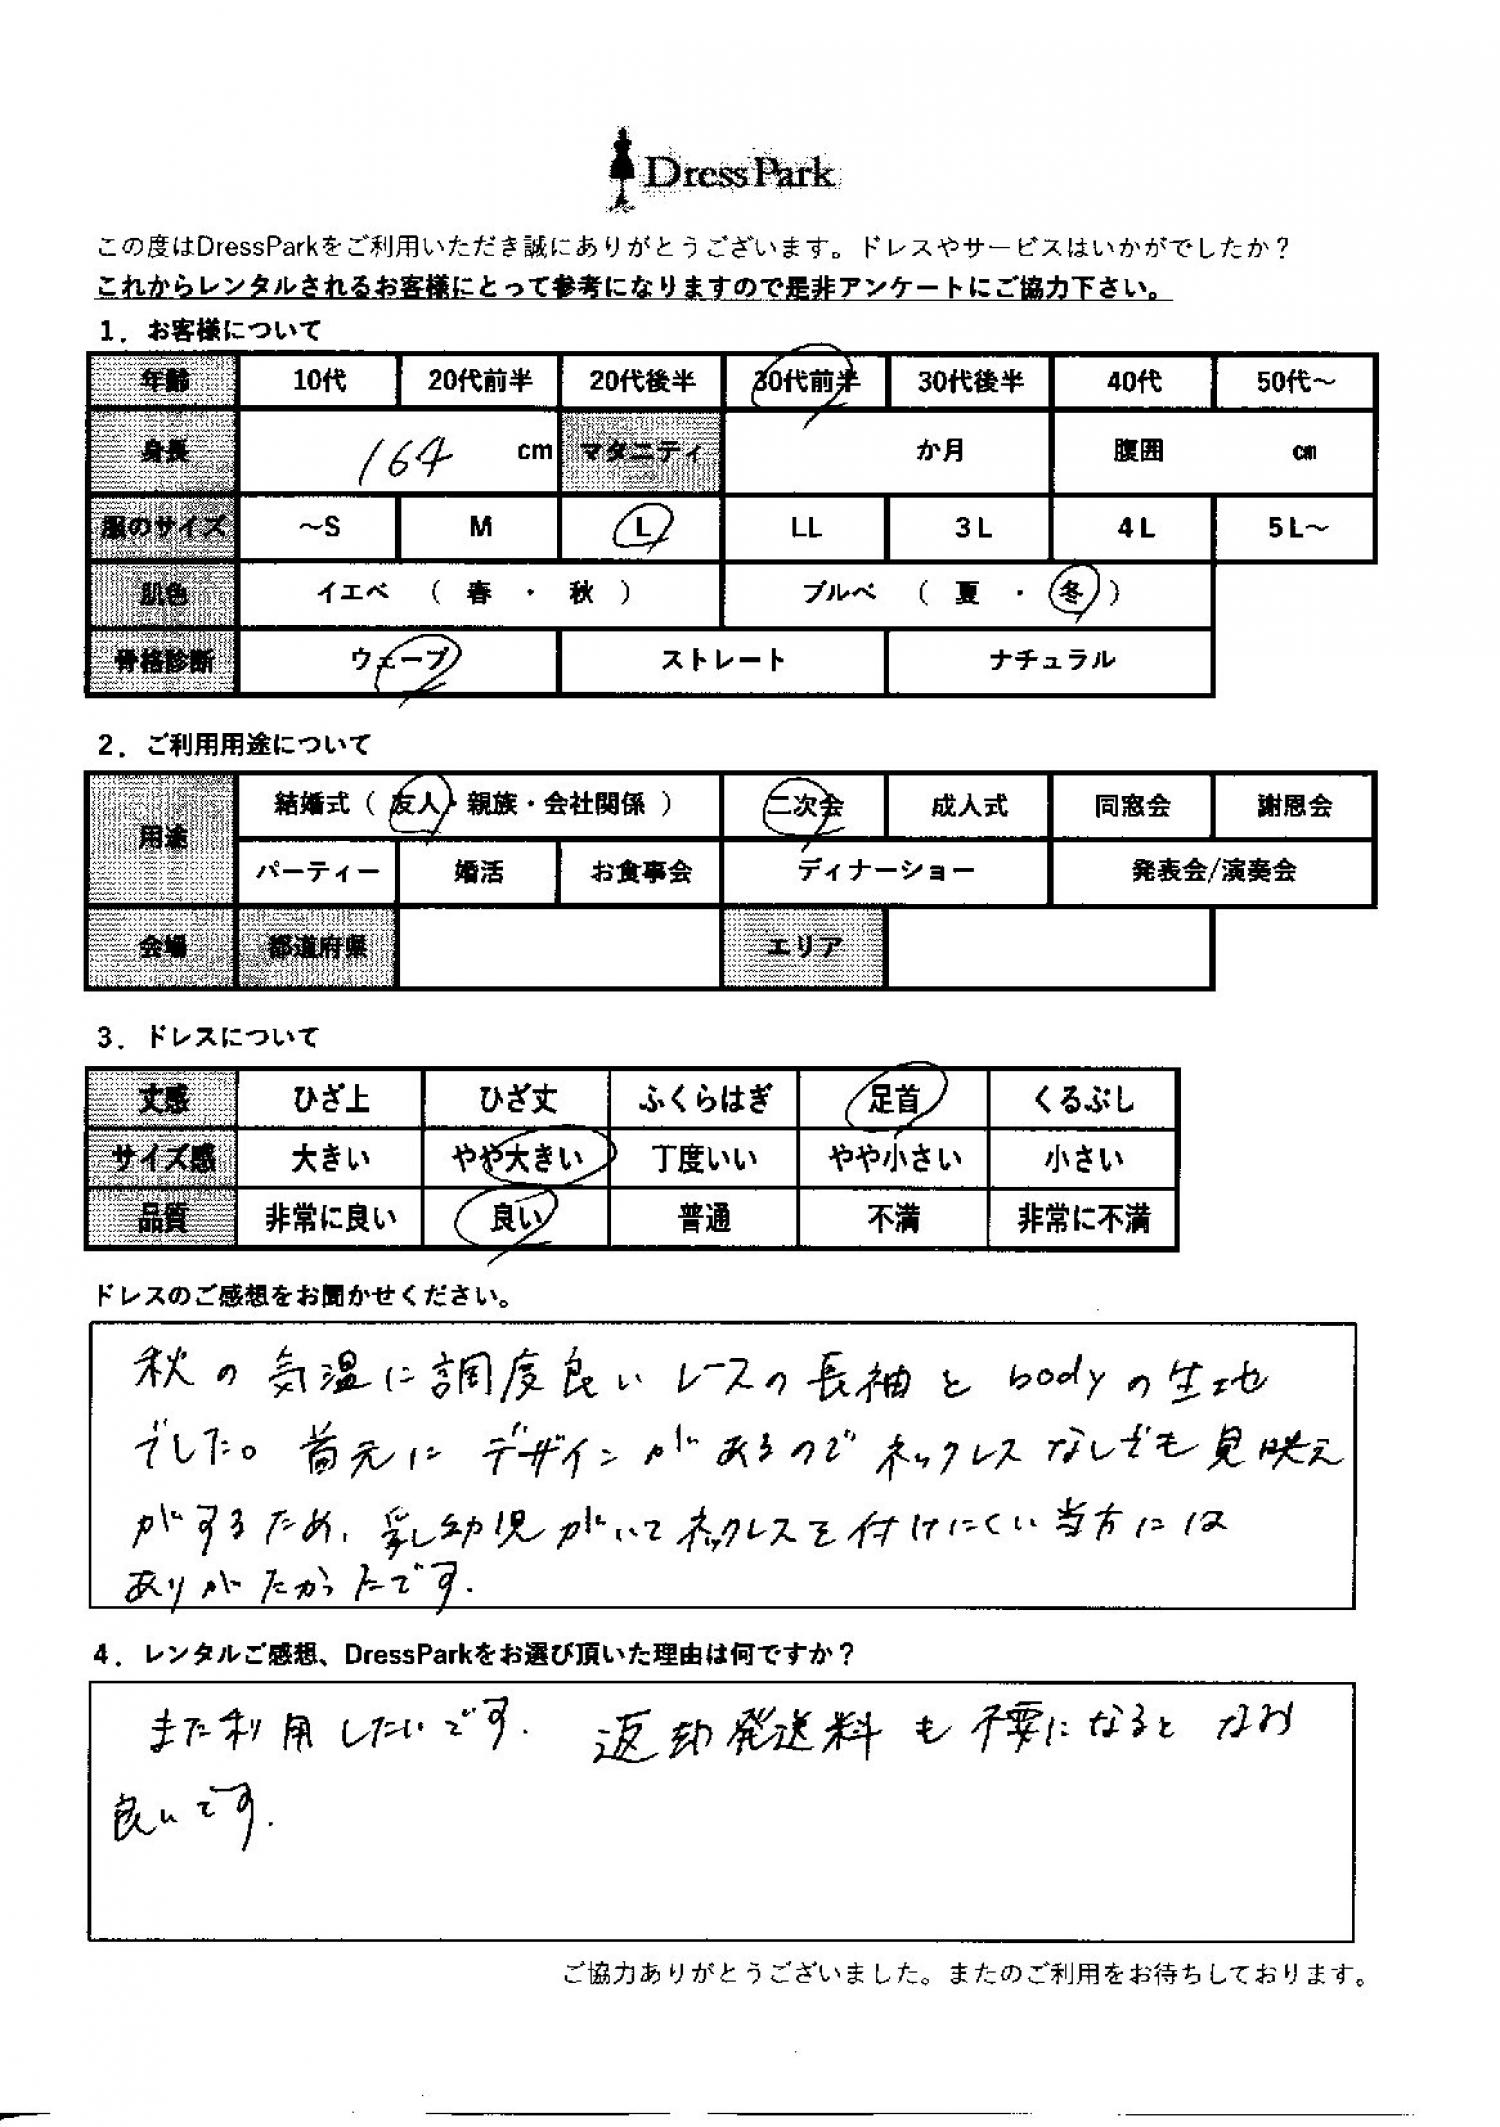 DressPark
この度はDressParkをご利用いただき誠にありがとうございます。ドレスやサービスはいかがでしたか？
これからレンタルされるお客様にとって参考になりますので是非アンケートにご協力下さい。
1．お客様について
年齢 10代 20代前半 20代後半 30代前半 30代後半 40代 50代～
身長 164 cm マタニティ か月 腹囲 cm
服のサイズ ～S M L LL 3L 4L 5L～
肌色 イエベ （ 春 ・ 秋 ） ブルベ （ 夏 ・ 冬 ）
骨格診断 ウェーブ ストレート ナチュラル
2．ご利用用途について
用途 結婚式（ 友人・親族・会社関係 ） 二次会 成人式 同窓会 謝恩会
パーティー 婚活 お食事会 ディナーショー 発表会/演奏会
会場 都道府県 エリア
3．ドレスについて
丈感 ひざ上 ひざ丈 ふくらはぎ 足首 くるぶし
サイズ感 大きい やや大きい 丁度いい やや小さい 小さい
品質 非常に良い 良い 普通 不満 非常に不満
ドレスのご感想をお聞かせください。
秋の気温に調度良いレースの長袖とbodyの生地
でした。首元にデザインがあるのでネックレスなしでも見映え
がするため、乳幼児がいてネックレスを付けにくい当方には
ありがたかったです.
4．レンタルご感想、DressParkをお選び頂いた理由は何ですか？
また利用したいです. 返却発送料も不要になるとなお
良いです.
ご協力ありがとうございました。またのご利用をお待ちしております。